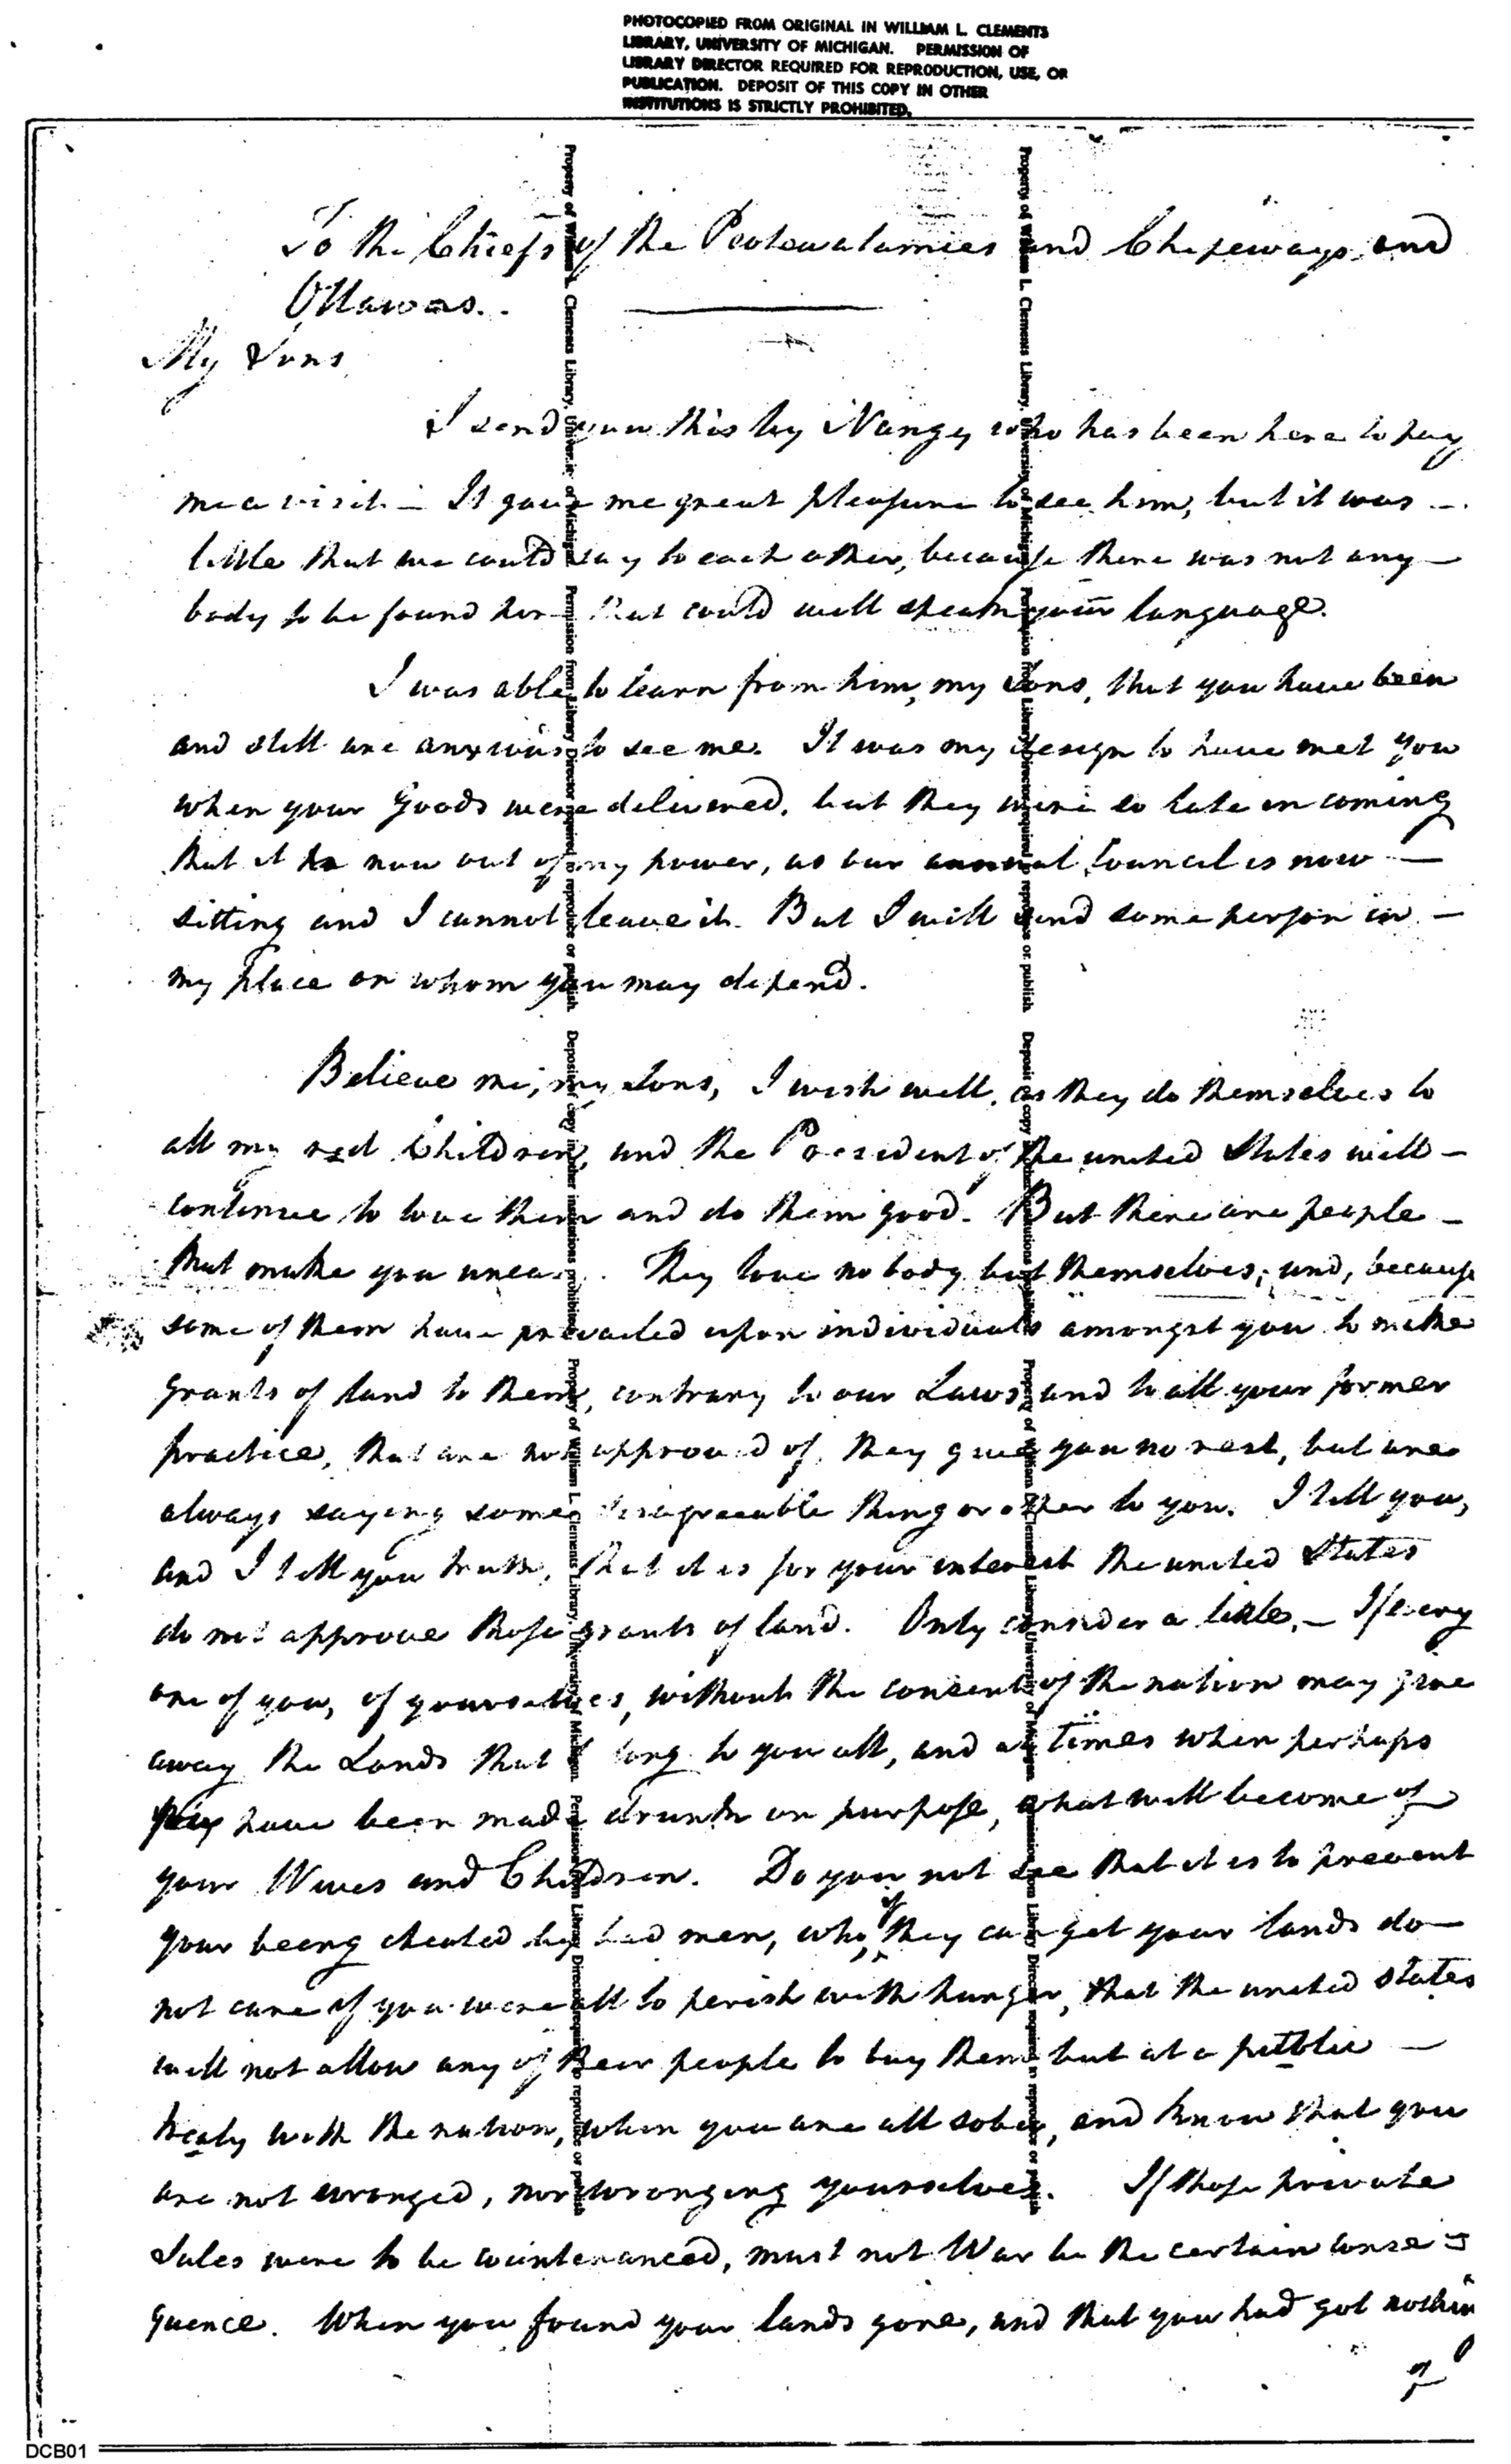 PHOTOCOPIED FROM ORIGINAL IN WILLIAM L. CLEMENTS
LIBRARY, UNIVERSITY OF MICHIGAN. PERMISSION OF
LIBRARY DIRECTOR REQUIRED FOR REPRODUCTION, USE, OR
PUBLICATION. DEPOSIT OF THIS COPY IN OTHER
INSTITUTIONS IS STRICTLY PROHIBITED.
To the Chiefs of the Poutowatamies and Chipeways and
Ottawas.
My Sons
I send you this by Nangy who has been here to pay
me a visit — It gave me great pleasure to see him, but it was —
little that we could say to each other, because there was not any —
body to be found here that could well speak your language.
I was able to learn from him, my Sons, that you have been
and still are anxious to see me. It was my design to have met you
when your Goods were delivered, but they were so late in coming
that it is now out of my power, as our annual Council is now —
sitting and I cannot leave it. But I will send some person in —
my place on whom you may depend.
Believe me, my Sons, I wish well, as they do themselves to
all my red Children, and the President of the united States will —
continue to love them and do them good. But there are people —
that make you . They love no body but themselves; and, because
some of them have prevailed upon individuals amongst you to make
grants of land to them, contrary to our Laws and to all your former
practice, that are not approved of, they give you no rest, but are
always saying some disagreeable thing or other to you. I tell you,
and I tell you truth, that it is for your interest the united States
do not approve those grants of land. Only consider a little, — If every
one of you, of yourselves, without the consent of the nation may give
away the Lands that belong to you all, and at times when perhaps
they have been made drunk on purpose, what will become of
your Wives and Children. Do you not see that it is to prevent
your being cheated by bad men, who, if they can get your lands do —
not care if you were all to perish with hunger, that the united States
will not allow any of their people to buy them but at a public —
treaty with the nation, when you are all sober, and know that you
are not wronged, nor wronging yourselves. If those private
Sales were to be countenanced, must not War be the certain conse=
quence. When you found your lands gone, and that you had got nothing
of
Property of William L. Clements Library, University of Michigan. Permission from Library Director required to reproduce or publish. Deposit of copy in other institutions prohibited.
Property of William L. Clements Library, University of Michigan. Permission from Library Director required to reproduce or publish. Deposit of copy in other institutions prohibited.
Property of William L. Clements Library, University of Michigan. Permission from Library Director required to reproduce or publish
Property of William L. Clements Library, University of Michigan. Permission from Library Director required to reproduce or publish
DCB01